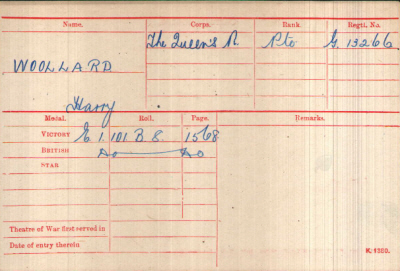 Name. Corps. Rank. Regtl. No.
The Queen's R Pte G 13266
WOOLLARD
Harry
Medal. Roll. Page. Remarks.
VICTORY E 1 101 B 8 1568
BRITISH do do
STAR
Theatre of War first served in
Date of entry therein
K. 1380.